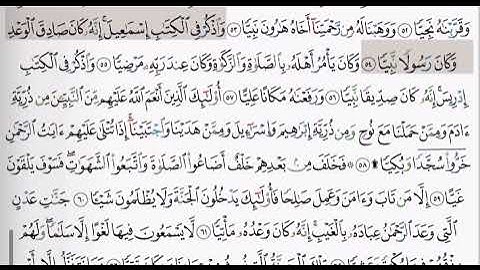 وَقَرَّبْنَٰهُ نَجِيًّا ٥٢ وَوَهَبْنَا لَهُۥ مِن رَّحْمَتِنَآ أَخَاهُ هَٰرُونَ نَبِيًّا ٥٣ وَٱذْكُرْ فِى ٱلْكِتَٰبِ إِسْمَٰعِيلَ إِنَّهُۥ كَانَ صَادِقَ ٱلْوَعْدِ
وَكَانَ رَسُولًا نَّبِيًّا ٥٤ وَكَانَ يَأْمُرُ أَهْلَهُۥ بِٱلصَّلَوٰةِ وَٱلزَّكَوٰةِ وَكَانَ عِندَ رَبِّهِۦ مَرْضِيًّا ٥٥ وَٱذْكُرْ فِى ٱلْكِتَٰبِ
إِدْرِيسَ إِنَّهُۥ كَانَ صِدِّيقًا نَّبِيًّا ٥٦ وَرَفَعْنَٰهُ مَكَانًا عَلِيًّا ٥٧ أُو۟لَٰٓئِكَ ٱلَّذِينَ أَنْعَمَ ٱللَّهُ عَلَيْهِم مِّنَ ٱلنَّبِيِّـۧنَ مِن ذُرِّيَّةِ
ءَادَمَ وَمِمَّنْ حَمَلْنَا مَعَ نُوحٍ وَمِن ذُرِّيَّةِ إِبْرَٰهِيمَ وَإِسْرَٰٓءِيلَ وَمِمَّنْ هَدَيْنَا وَٱجْتَبَيْنَآ إِذَا تُتْلَىٰ عَلَيْهِمْ ءَايَٰتُ ٱلرَّحْمَٰنِ
خَرُّوا۟ سُجَّدًا وَبُكِيًّا ۩ ٥٨ فَخَلَفَ مِنۢ بَعْدِهِمْ خَلْفٌ أَضَاعُوا۟ ٱلصَّلَوٰةَ وَٱتَّبَعُوا۟ ٱلشَّهَوَٰتِ فَسَوْفَ يَلْقَوْنَ
غَيًّا ٥٩ إِلَّا مَن تَابَ وَءَامَنَ وَعَمِلَ صَٰلِحًا فَأُو۟لَٰٓئِكَ يَدْخُلُونَ ٱلْجَنَّةَ وَلَا يُظْلَمُونَ شَيْـًٔا ٦٠ جَنَّٰتِ عَدْنٍ
ٱلَّتِى وَعَدَ ٱلرَّحْمَٰنُ عِبَادَهُۥ بِٱلْغَيْبِ إِنَّهُۥ كَانَ وَعْدُهُۥ مَأْتِيًّا ٦١ لَّا يَسْمَعُونَ فِيهَا لَغْوًا إِلَّا سَلَٰمًا وَلَهُمْ